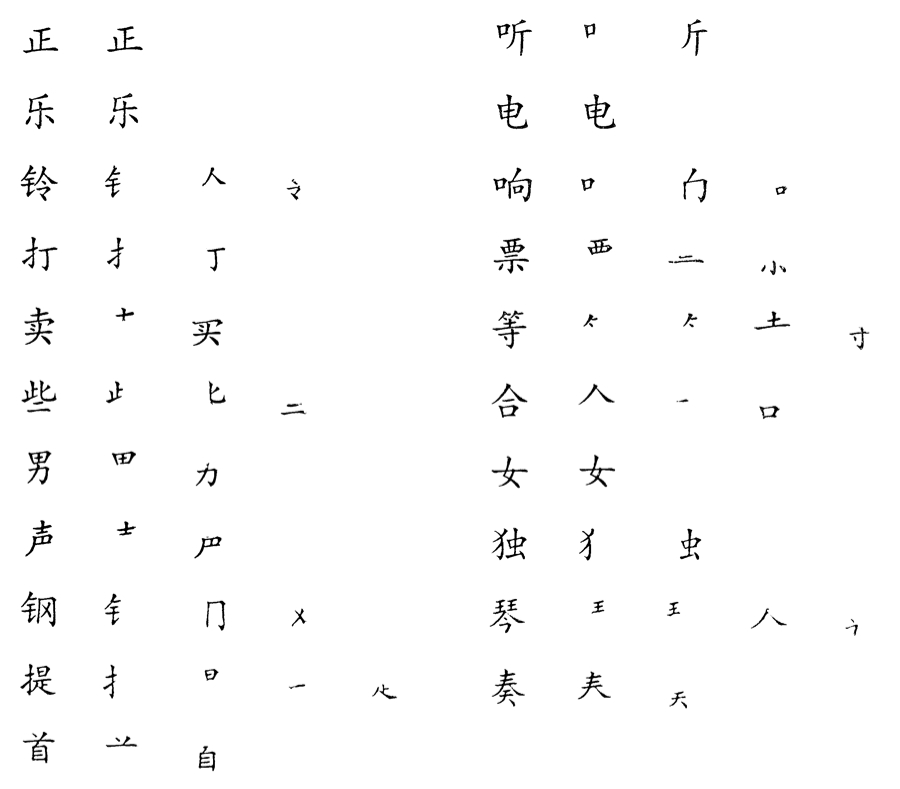 正 正
乐 乐
铃 钅 人
打 扌 丁
卖 十 买
些 止 匕 二
男 田 力
声 士
钢 钅 冂 㐅
提 扌 日 一
首 䒑 自
听 口 斤
电 电
响 口 口
票 覀 二 小
等 土 寸
合 人 一 口
女 女
独 犭 虫
琴 王 王 人
奏 𡗗 天